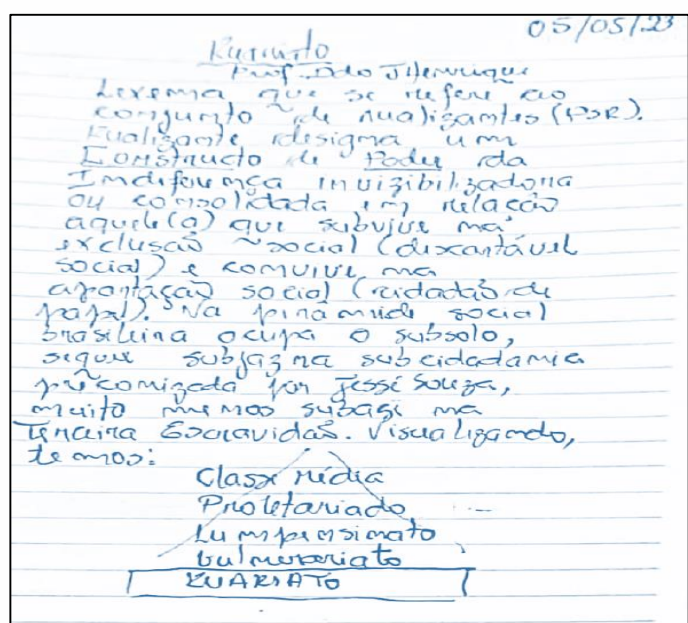 05/05/23
Prof. João J Henrique
Lexema que se refere ao
conjunto de rualizantes (PSR).
Rualizante designa um
Constructo de Poder da
Indiferença invizibilizadora
ou consolidada em relação
aquele(a) que subvive na
exclusão social (descartável
social) e convive na
apartação social (cidadão de
papel). Na pirâmide social
brasileira ocupa o subsolo,
sequer subjaz na subcidadania
preconizada por Jessé Souza,
muito menos subagi na
Terceira Escravidão. Visualizando,
temos:
Classe média
Proletariado
Lumpensinato
Vulneseriato
RUARIATO